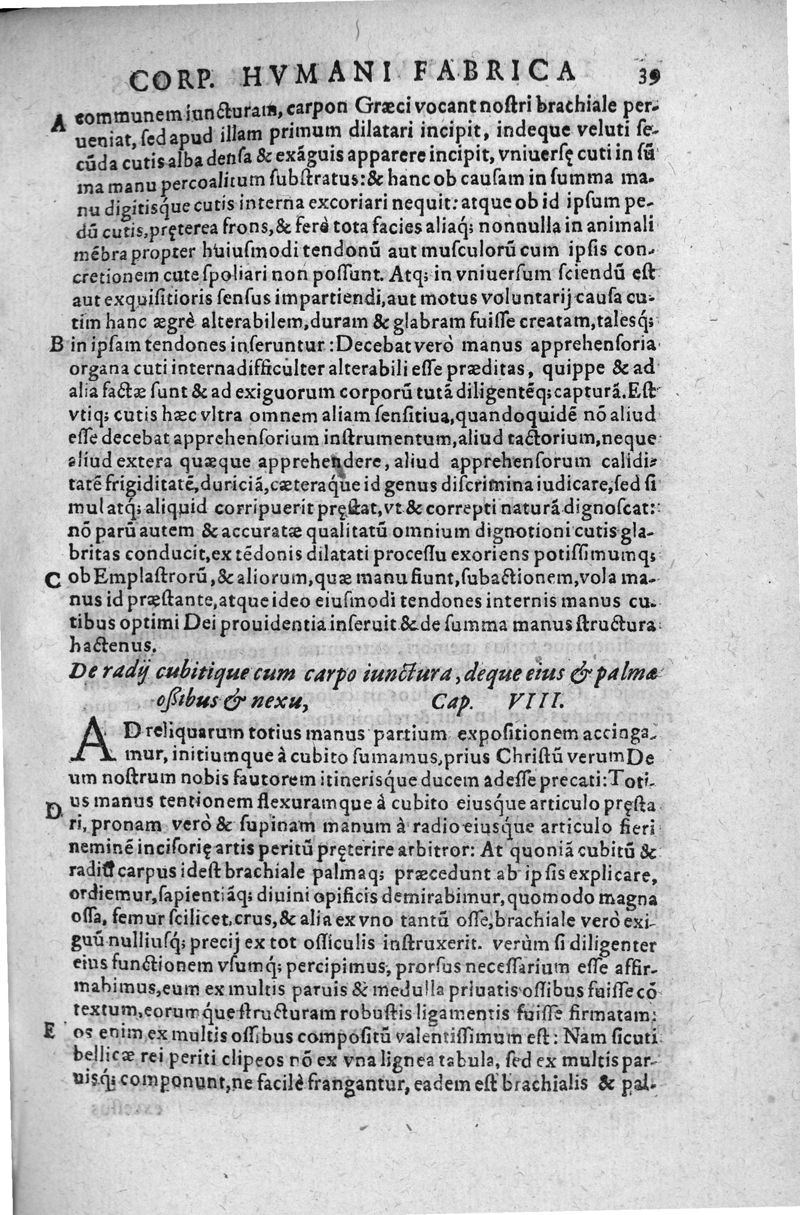 CORP. HVMANI FABRICA 39
A communem iuncturam, carpon Græci vocant nostri brachiale per-
ueniat, sed apud illam primum dilatari incipit, indeque veluti se-
cūda cutis alba densa & exāguis apparere incipit, vniuersę cuti in sū
ma manu percoalitum substratus: & hanc ob causam in summa ma-
nu digitisq́ue cutis interna excoriari nequit: atque ob id ipsum pe-
dū cutis, pręterea frons, & ferè tota facies aliaq; nonnulla in animali
mēbra propter huiusmodi tendonū aut musculorū cum ipsis con-
cretionem cute spoliari non possunt. Atq; in vniuersum sciendū est
aut exquisitioris sensus impartiendi, aut motus voluntarij causa cu-
tim hanc ægrè alterabilem, duram & glabram fuisse creatam, talesq́;
B in ipsam tendones inseruntur: Decebat verò manus apprehensoria
organa cuti interna difficulter alterabili esse præditas, quippe & ad
alia factæ sunt & ad exiguorum corporū tutā diligentēq; capturā. Est
vtiq; cutis hæc vltra omnem aliam sensitiua, quandoquidē nō aliud
esse decebat apprehensorium instrumentum, aliud tactorium, neque
aliud extera quæque apprehendere, aliud apprehensorum calidi-
tatē frigiditatē, duriciā, cæteraq́ue id genus discrimina iudicare, sed si
mul atq; aliquid corripuerit pręstat, vt & correpti naturā dignoscat:
nō parū autem & accuratæ qualitatū omnium dignotioni cutis gla-
britas conducit, ex tēdonis dilatati processu exoriens potissimumq́;
C ob Emplastrorū, & aliorum, quæ manu fiunt, subactionem, vola ma-
nus id præstante, atque ideo eiusmodi tendones internis manus cu-
tibus optimi Dei prouidentia inseruit & de summa manus structura
hactenus.
De radij cubitique cum carpo iunctura, deque eius & palmæ
ossibus & nexu, Cap. VIII.
AD reliquarum totius manus partium expositionem accinga-
mur, initiumque à cubito sumamus, prius Christū verum De
um nostrum nobis fautorem itinerisque ducem adesse precati: Toti-
D us manus tentionem flexuramque à cubito eiusq́ue articulo pręsta
ri, pronam verò & supinam manum à radio eiusq́ue articulo fieri
neminē incisorię artis peritū pręterire arbitror: At quoniā cubitū &
radiū carpus idest brachiale palmaq; præcedunt ab ipsis explicare,
ordiemur, sapientiāq; diuini opificis demirabimur, quomodo magna
ossa, femur scilicet, crus, & alia ex vno tantū osse, brachiale verò exi-
guū nulliusq́; precij ex tot ossiculis instruxerit. verùm si diligenter
eius functionem vsumq́; percipimus, prorsus necessarium esse affir-
mabimus, eum ex multis paruis & medulla priuatis ossibus fuisse cō
textum, eorumq́ue structuram robustis ligamentis fuisse firmatam:
E os enim ex multis ossibus compositū valentissimum est: Nam sicuti
bellicæ rei periti clipeos nō ex vna lignea tabula, sed ex multis par-
uisq́; componunt, ne facilè frangantur, eadem est brachialis & pal-